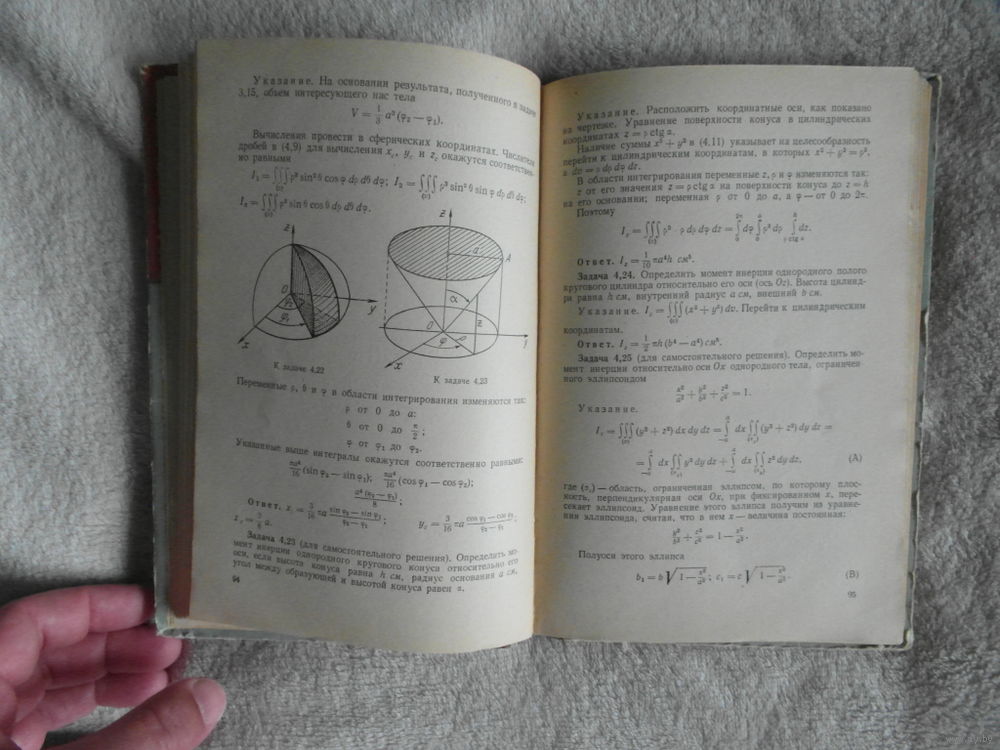 Указание. На основании результата, полученного в задаче
3,15, объем интересующего нас тела
V = 1/3 a³ (φ₂ — φ₁).
Вычисления провести в сферических координатах. Числители
дробей в (4,9) для вычисления x_c, y_c и z_c окажутся соответствен-
но равными
I₁ = ∭_(v) ρ³ sin² θ cos φ dρ dθ dφ; I₂ = ∭_(v) ρ³ sin² θ sin φ dρ dθ dφ;
I₃ = ∭_(v) ρ³ sin θ cos θ dρ dθ dφ.
z
O
φ₂
φ₁
x
y
К задаче 4,22
z
a
A
α
O
z
φ
ρ
x
К задаче 4,23
Переменные ρ, θ и φ в области интегрирования изменяются так:
ρ от 0 до a;
θ от 0 до π/2;
φ от φ₁ до φ₂.
Указанные выше интегралы окажутся соответственно равными:
πa⁴/16 (sin φ₂ — sin φ₁); πa⁴/16 (cos φ₁ — cos φ₂);
a⁴ (φ₂ — φ₁)/8;
Ответ. x_c = 3/16 πa (sin φ₂ — sin φ₁)/(φ₂ — φ₁); y_c = 3/16 πa (cos φ₁ — cos φ₂)/(φ₂ — φ₁);
z_c = 3/8 a.
Задача 4,23 (для самостоятельного решения). Определить мо-
мент инерции однородного кругового конуса относительно его
оси, если высота конуса равна h см, радиус основания a см,
угол между образующей и высотой конуса равен α.
94
Указание. Расположить координатные оси, как показано
на чертеже. Уравнение поверхности конуса в цилиндрических
координатах z = ρ ctg α.
Наличие суммы x² + y² в (4,11) указывает на целесообразность
перейти к цилиндрическим координатам, в которых x² + y² = ρ²,
а dv = ρ dρ dφ dz.
В области интегрирования переменные z, ρ и φ изменяются так:
z от его значения z = ρ ctg α на поверхности конуса до z = h
на его основании; переменная ρ от 0 до a, а φ — от 0 до 2π.
Поэтому
I_z = ∭_(v) ρ² · ρ dρ dφ dz = ∫₀^2π dφ ∫₀^a ρ³ dρ ∫_ρ ctg α^h dz.
Ответ. I_z = 1/10 πa⁴h см⁵.
Задача 4,24. Определить момент инерции однородного полого
кругового цилиндра относительно его оси (ось Oz). Высота цилинд-
ра равна h см, внутренний радиус a см, внешний b см.
Указание. I_z = ∭_(v) (x² + y²) dv. Перейти к цилиндрическим
координатам.
Ответ. I_z = 1/2 πh (b⁴ — a⁴) см⁵.
Задача 4,25 (для самостоятельного решения). Определить мо-
мент инерции относительно оси Ox однородного тела, ограничен-
ного эллипсоидом
x²/a² + y²/b² + z²/c² = 1.
Указание.
I_x = ∭_(v) (y² + z²) dx dy dz = ∫_—a^a dx ∬_(σx) (y² + z²) dy dz =
= ∫_—a^a dx ∬_(σx) y² dy dz + ∫_—a^a dx ∬_(σx) z² dy dz, (A)
где (σx) — область, ограниченная эллипсом, по которому плос-
кость, перпендикулярная оси Ox, при фиксированном x, пере-
секает эллипсоид. Уравнение этого эллипса получим из уравне-
ния эллипсоида, считая, что в нем x — величина постоянная:
y²/b² + z²/c² = 1 — x²/a².
Полуоси этого эллипса
b₁ = b √(1 — x²/a²); c₁ = c √(1 — x²/a²). (B)
95